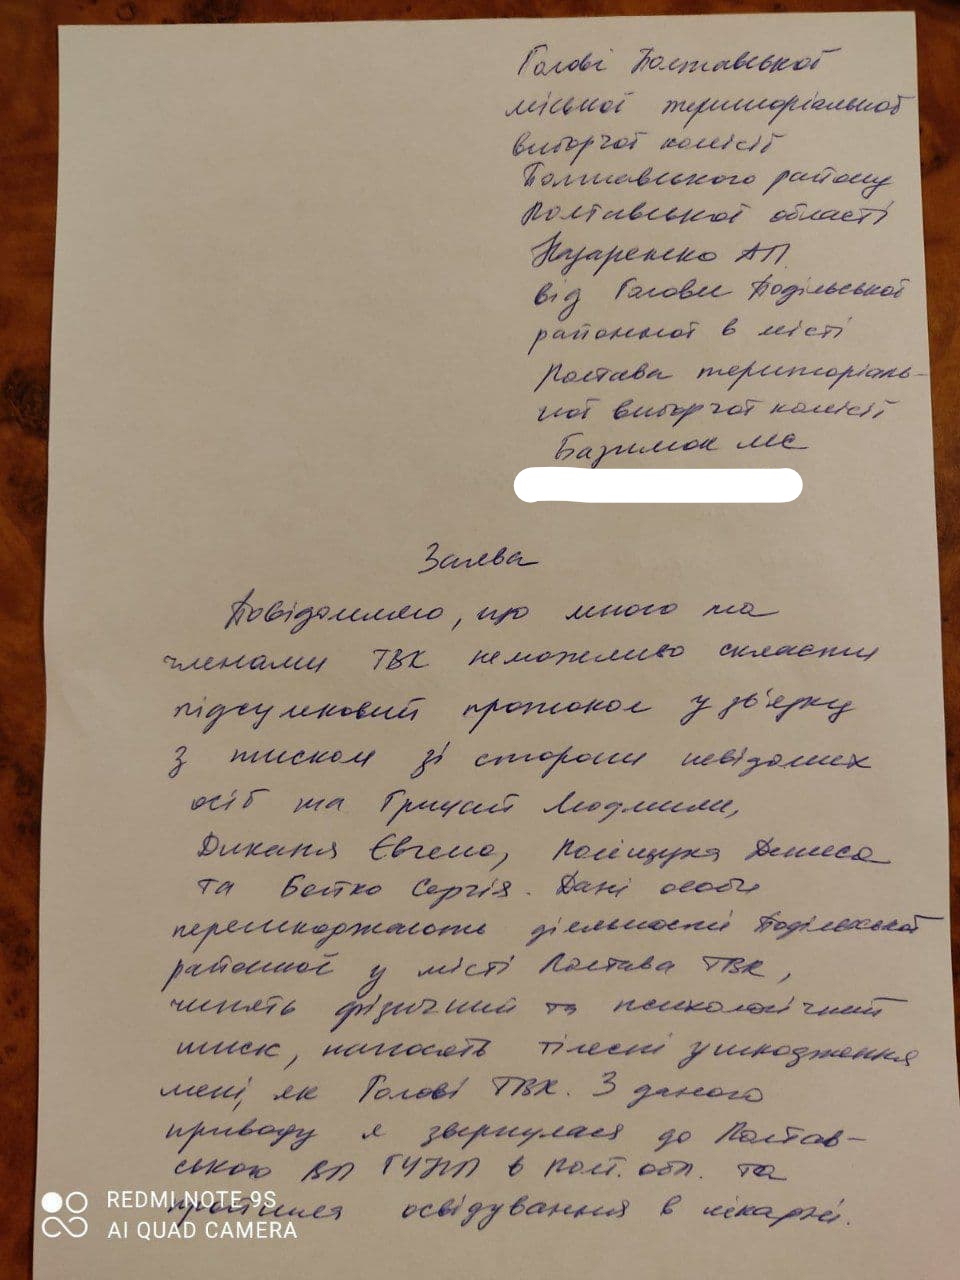 Голові Полтавської
міської територіальної
виборчої комісії
Полтавського району
Полтавської області
Назаренко АП.
від Голови Подільської
районної в місті
Полтава територіаль-
ної виборчої комісії
Базимок МС
Заява
Повідомляю, що мною та
членами ТВК неможливо скласти
підсумковий протокол у зв'язку
з тиском зі сторони невідомих
осіб та Грицай Людмили,
Диканя Євгена, Поліщука Дениса
та Бойко Сергія. Дані особи
перешкоджають діяльності Подільської
районної у місті Полтава ТВК,
чинять фізичний та психологічний
тиск, наносять тілесні ушкодження
мені, як Голові ТВК. З даного
приводу я звернулася до Полтав-
ською ВП ГУНП в Полт. обл. та
пройшла освідування в лікарні.
REDMI NOTE 9S
AI QUAD CAMERA